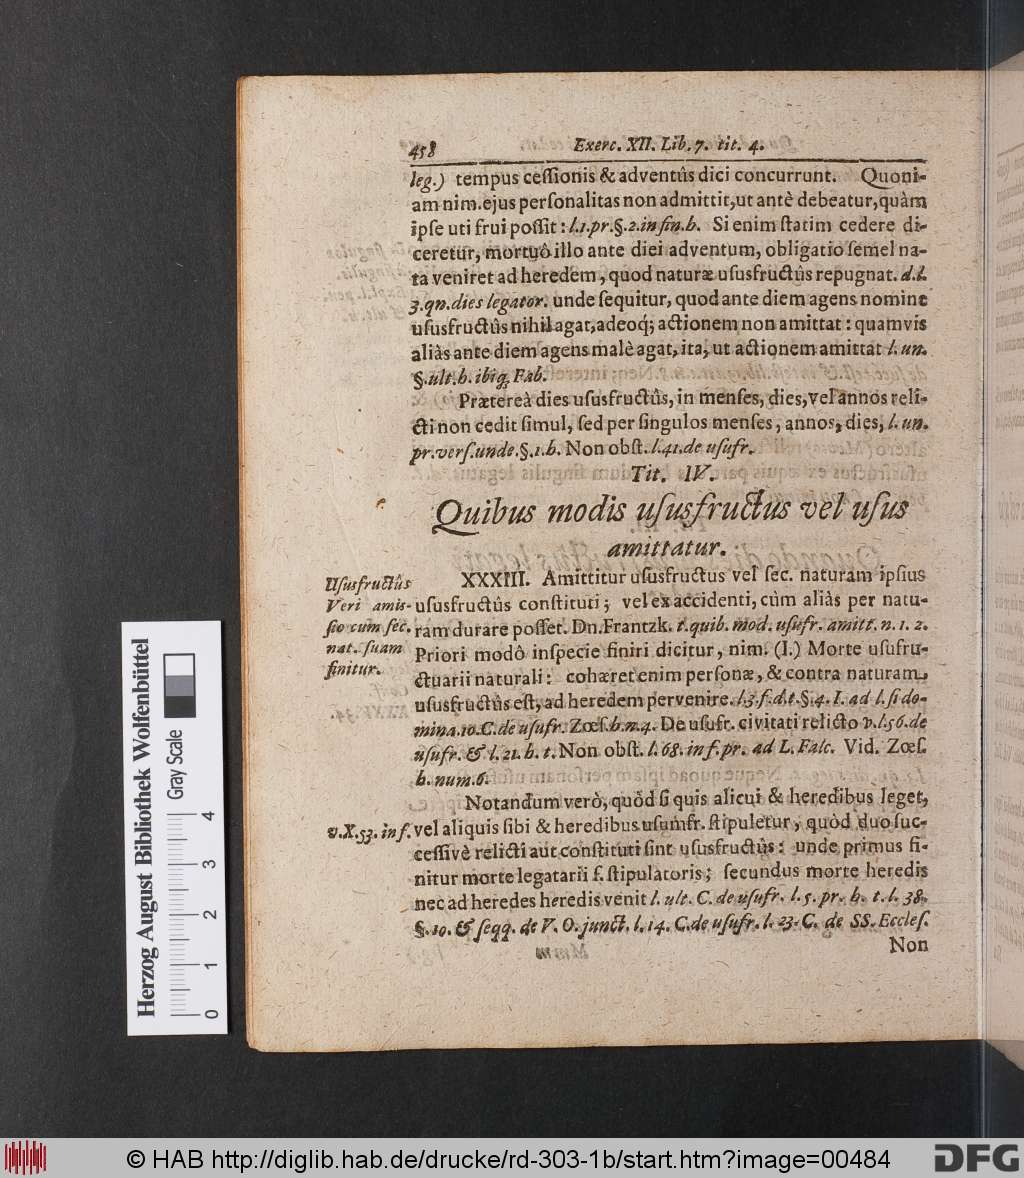 458 Exerc. XII. Lib. 7. tit. 4.
leg.) tempus cessionis & adventûs dici concurrunt. Quoni-
am nim. ejus personalitas non admittit, ut antè debeatur, quàm
ipse uti frui possit: l. 1. pr. §. 2. in fin. h. Si enim statim cedere di-
ceretur, mortuô illo ante diei adventum, obligatio semel na-
ta veniret ad heredem, quod naturæ ususfructûs repugnat. d. l.
3. qn. dies legator. unde sequitur, quod ante diem agens nomine
ususfructûs nihil agat, adeoq; actionem non amittat: quamvis
aliàs ante diem agens malè agat, ita, ut actionem amittat l. un.
§. ult. h. ibiq; Fab.
Prætereà dies ususfructûs, in menses, dies, vel annos reli-
cti non cedit simul, sed per singulos menses, annos, dies, l. un.
pr. vers. unde. §. 1. h. Non obst. l. 41. de usufr.
Tit. IV.
Quibus modis ususfructus vel usus
amittatur.
Ususfructûs
Veri amis-
sio cum sec.
nat. suam
finitur.
XXXIII. Amittitur ususfructus vel sec. naturam ipsius
ususfructûs constituti; vel ex accidenti, cùm aliàs per natu-
ram durare posset. Dn. Frantzk. t. quib. mod. usufr. amitt. n. 1. 2.
Priori modô inspecie finiri dicitur, nim. (I.) Morte usufru-
ctuarii naturali: cohæret enim personæ, & contra naturam
ususfructûs est, ad heredem pervenire. l. 3. f. d. t. §. 4. I. ad l. si do-
mina. 10. C. de usufr. Zœs. h. n. 4. De usufr. civitati relicto v. l. 56. de
usufr. & l. 21. h. t. Non obst. l. 68. in f. pr. ad L. Falc. Vid. Zœs.
h. num. 6.
Notandum verò, quòd si quis alicui & heredibus leget,
v. X. 53. in f.
vel aliquis sibi & heredibus usumfr. stipuletur, quòd duo suc-
cessivè relicti aut constituti sint ususfructûs: unde primus fi-
nitur morte legatarii s. stipulatoris; secundus morte heredis
nec ad heredes heredis venit l. ult. C. de usufr. l. 5. pr. h. t. l. 38.
§. 10. & seqq. de V. O. junct. l. 14. C. de usufr. l. 23. C. de SS. Eccles.
Non
Herzog August Bibliothek Wolfenbüttel
Gray Scale
0 1 2 3 4
© HAB http://diglib.hab.de/drucke/rd-303-1b/start.htm?image=00484
DFG